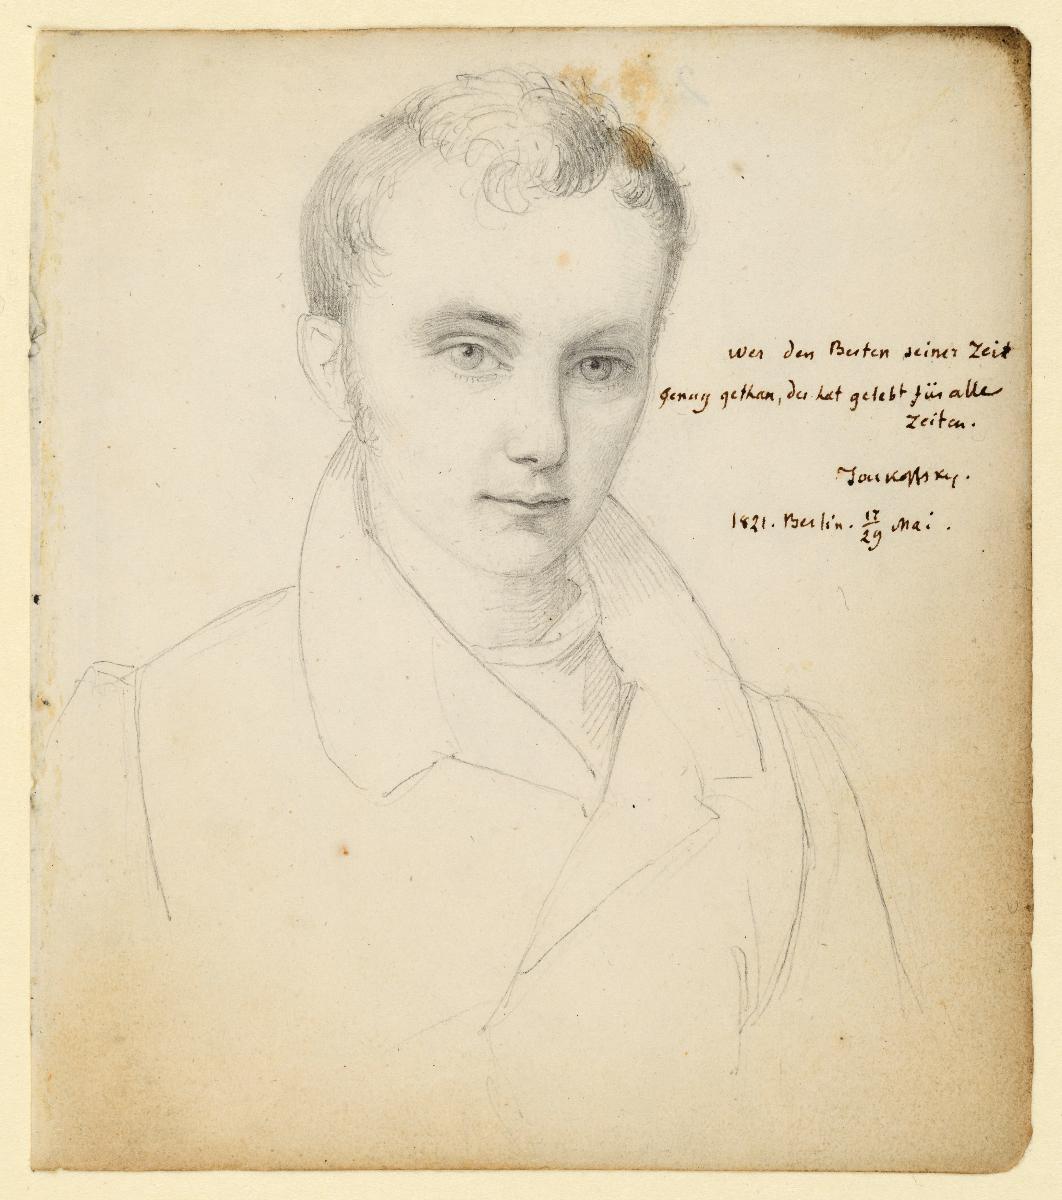 Wer den Besten seiner Zeit
genug gethan, der hat gelebt für alle
Zeiten.
Joukoffsky.
1821. Berlin. 17/29 Mai.